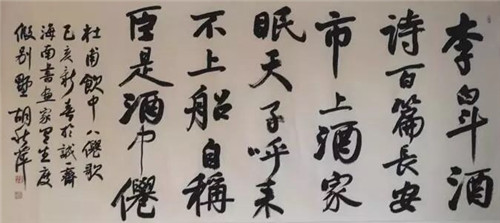 李白斗酒
詩百篇長安
市上酒家
眠天子呼来
不上船自稱
臣是酒中僊
杜甫飲中八僊歌
己亥新春於誠齋
海南書畫家生度
假别墅 胡秋萍